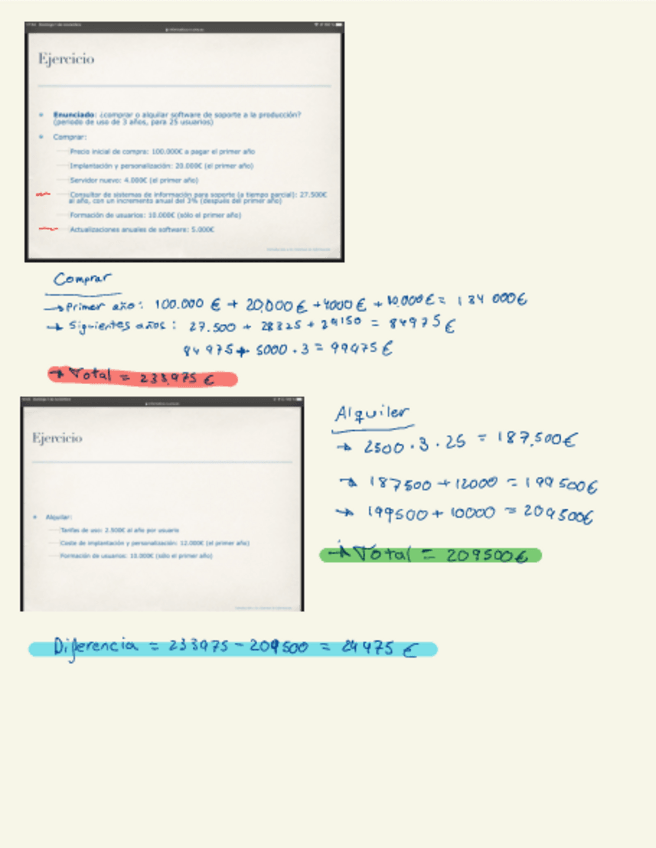 Ejercicio
Enunciado: ¿comprar o alquilar software de soporte a la producción?
(periodo de uso de 3 años, para 25 usuarios)
Comprar:
Precio inicial de compra: 100.000€ a pagar el primer año
Implantación y personalización: 20.000€ (el primer año)
Servidor nuevo: 4.000€ (el primer año)
Consultor de sistemas de información para soporte (a tiempo parcial): 27.500€
al año, con un incremento anual del 3% (después del primer año)
Formación de usuarios: 10.000€ (sólo el primer año)
Actualizaciones anuales de software: 5.000€
Comprar
→ Primer año: 100.000 € + 20.000 € + 4000 € + 10.000 € = 134 000€
→ Siguientes años: 27.500 + 28325 + 29150 = 84975 €
84 975 + 5000 · 3 = 99975 €
→ Total = 233.975 €
Ejercicio
Alquilar:
Tarifas de uso: 2.500€ al año por usuario
Coste de implantación y personalización: 12.000€ (el primer año)
Formación de usuarios: 10.000€ (sólo el primer año)
Alquiler
→ 2500 · 3 · 25 = 187.500€
→ 187500 + 12000 = 199500€
→ 199500 + 10000 = 209500€
→ Total = 209500€
Diferencia = 233975 - 209500 = 24475 €